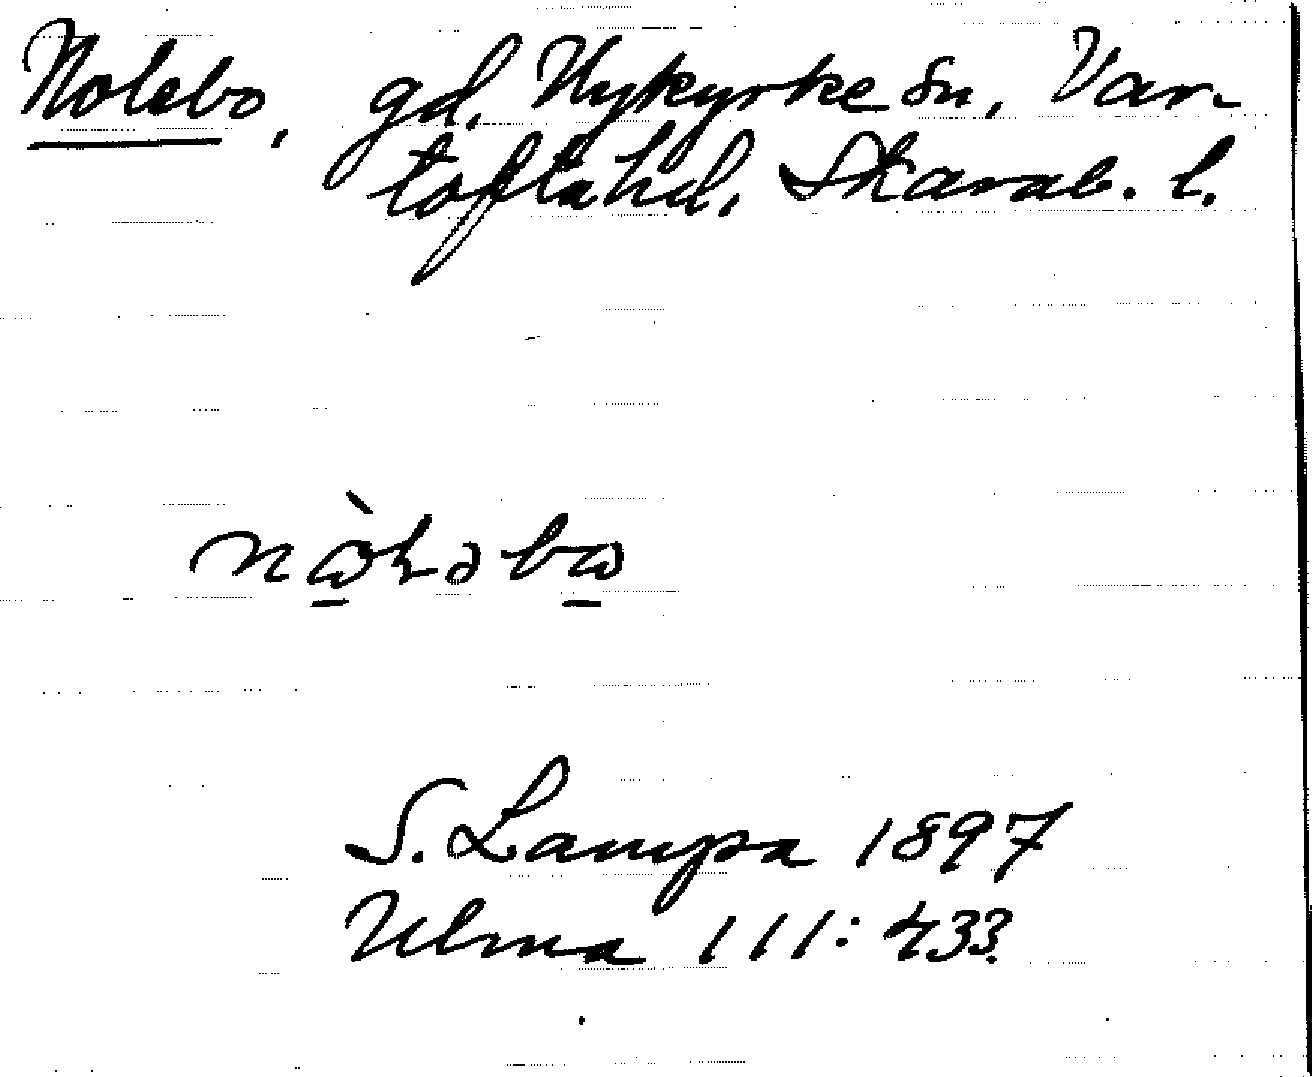 Nolebo, gd, Nykyrke sn, Var-
tofta hd, Skarab. l.
S. Lampa 1897
Ulma 111:433.